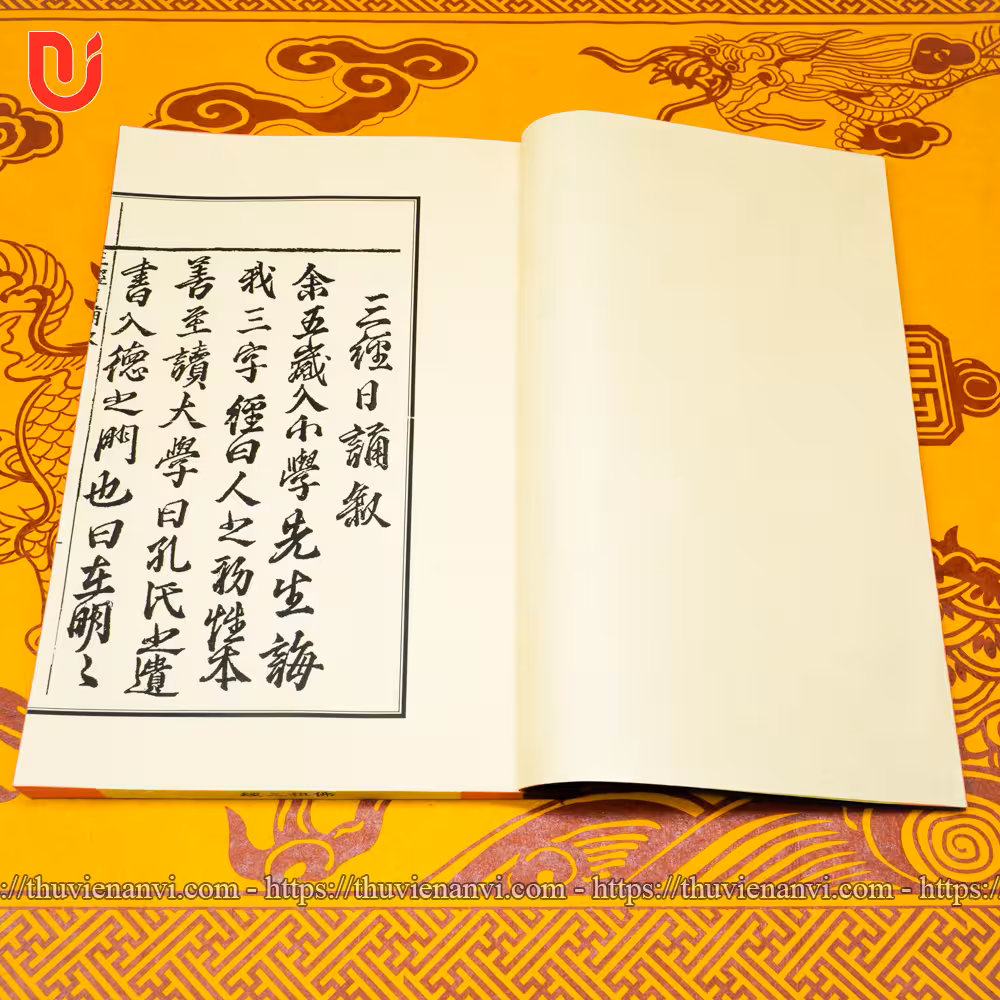 三經日誦叙
余五歲入小學先生誨
我三字經曰人之初性本
善至讀大學曰孔氏之遺
書入德之門也曰在明〻
佛祖三經
://thuvienanvi.com - https://thuvienanvi.com - https://thuvienanvi.com - https://